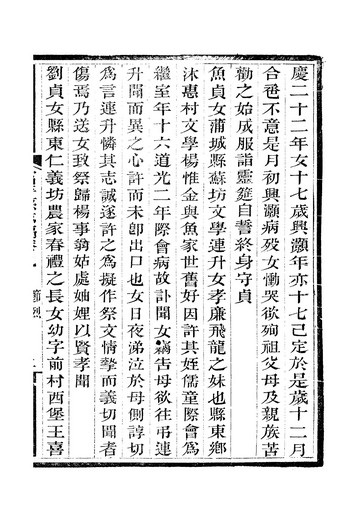 慶二十二年女十七歲興灝年亦十七已定於是歲十二月
合巹不意是月初興灝病歿女慟哭欲殉祖父母及親族苦
勸之始成服詣靈筵自誓終身守貞
魚貞女蒲城縣蘇坊文學連升女孝廉飛龍之妹也縣東鄉
沐惠村文學楊惟金與魚家世舊好因許其姪儒童際會爲
繼室年十六道光二年際會病故訃聞女竊告母欲往弔連
升聞而異之心許而未卽出口也女日夜涕泣於母側諄切
爲言連升憐其志誠遂許之爲擬作祭文情摯而義切聞者
傷焉乃送女致祭歸楊事翁姑處妯娌以賢孝聞
劉貞女縣東仁義坊農家春禮之長女幼字前村西堡王喜
節烈